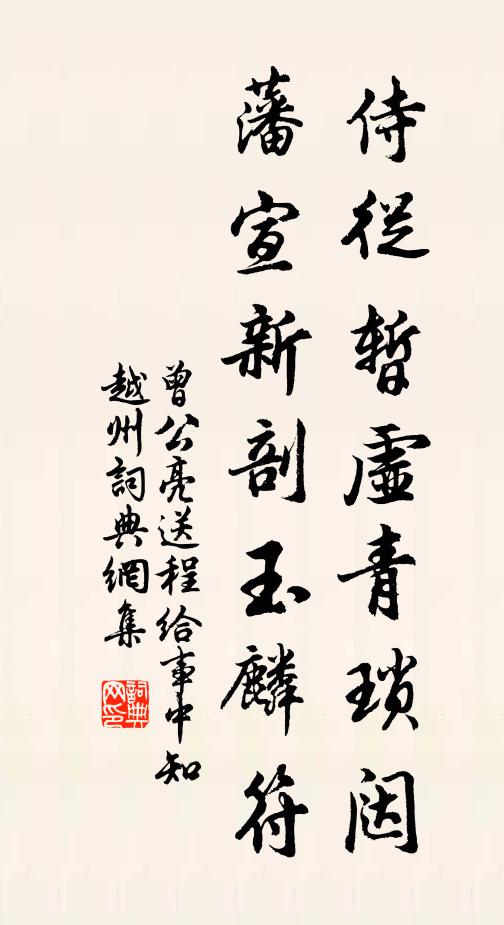 侍從暫虛青瑣闥
藩宣新剖玉麟符
曾公亮送程給事中知
越州詞典網集
詞典网印